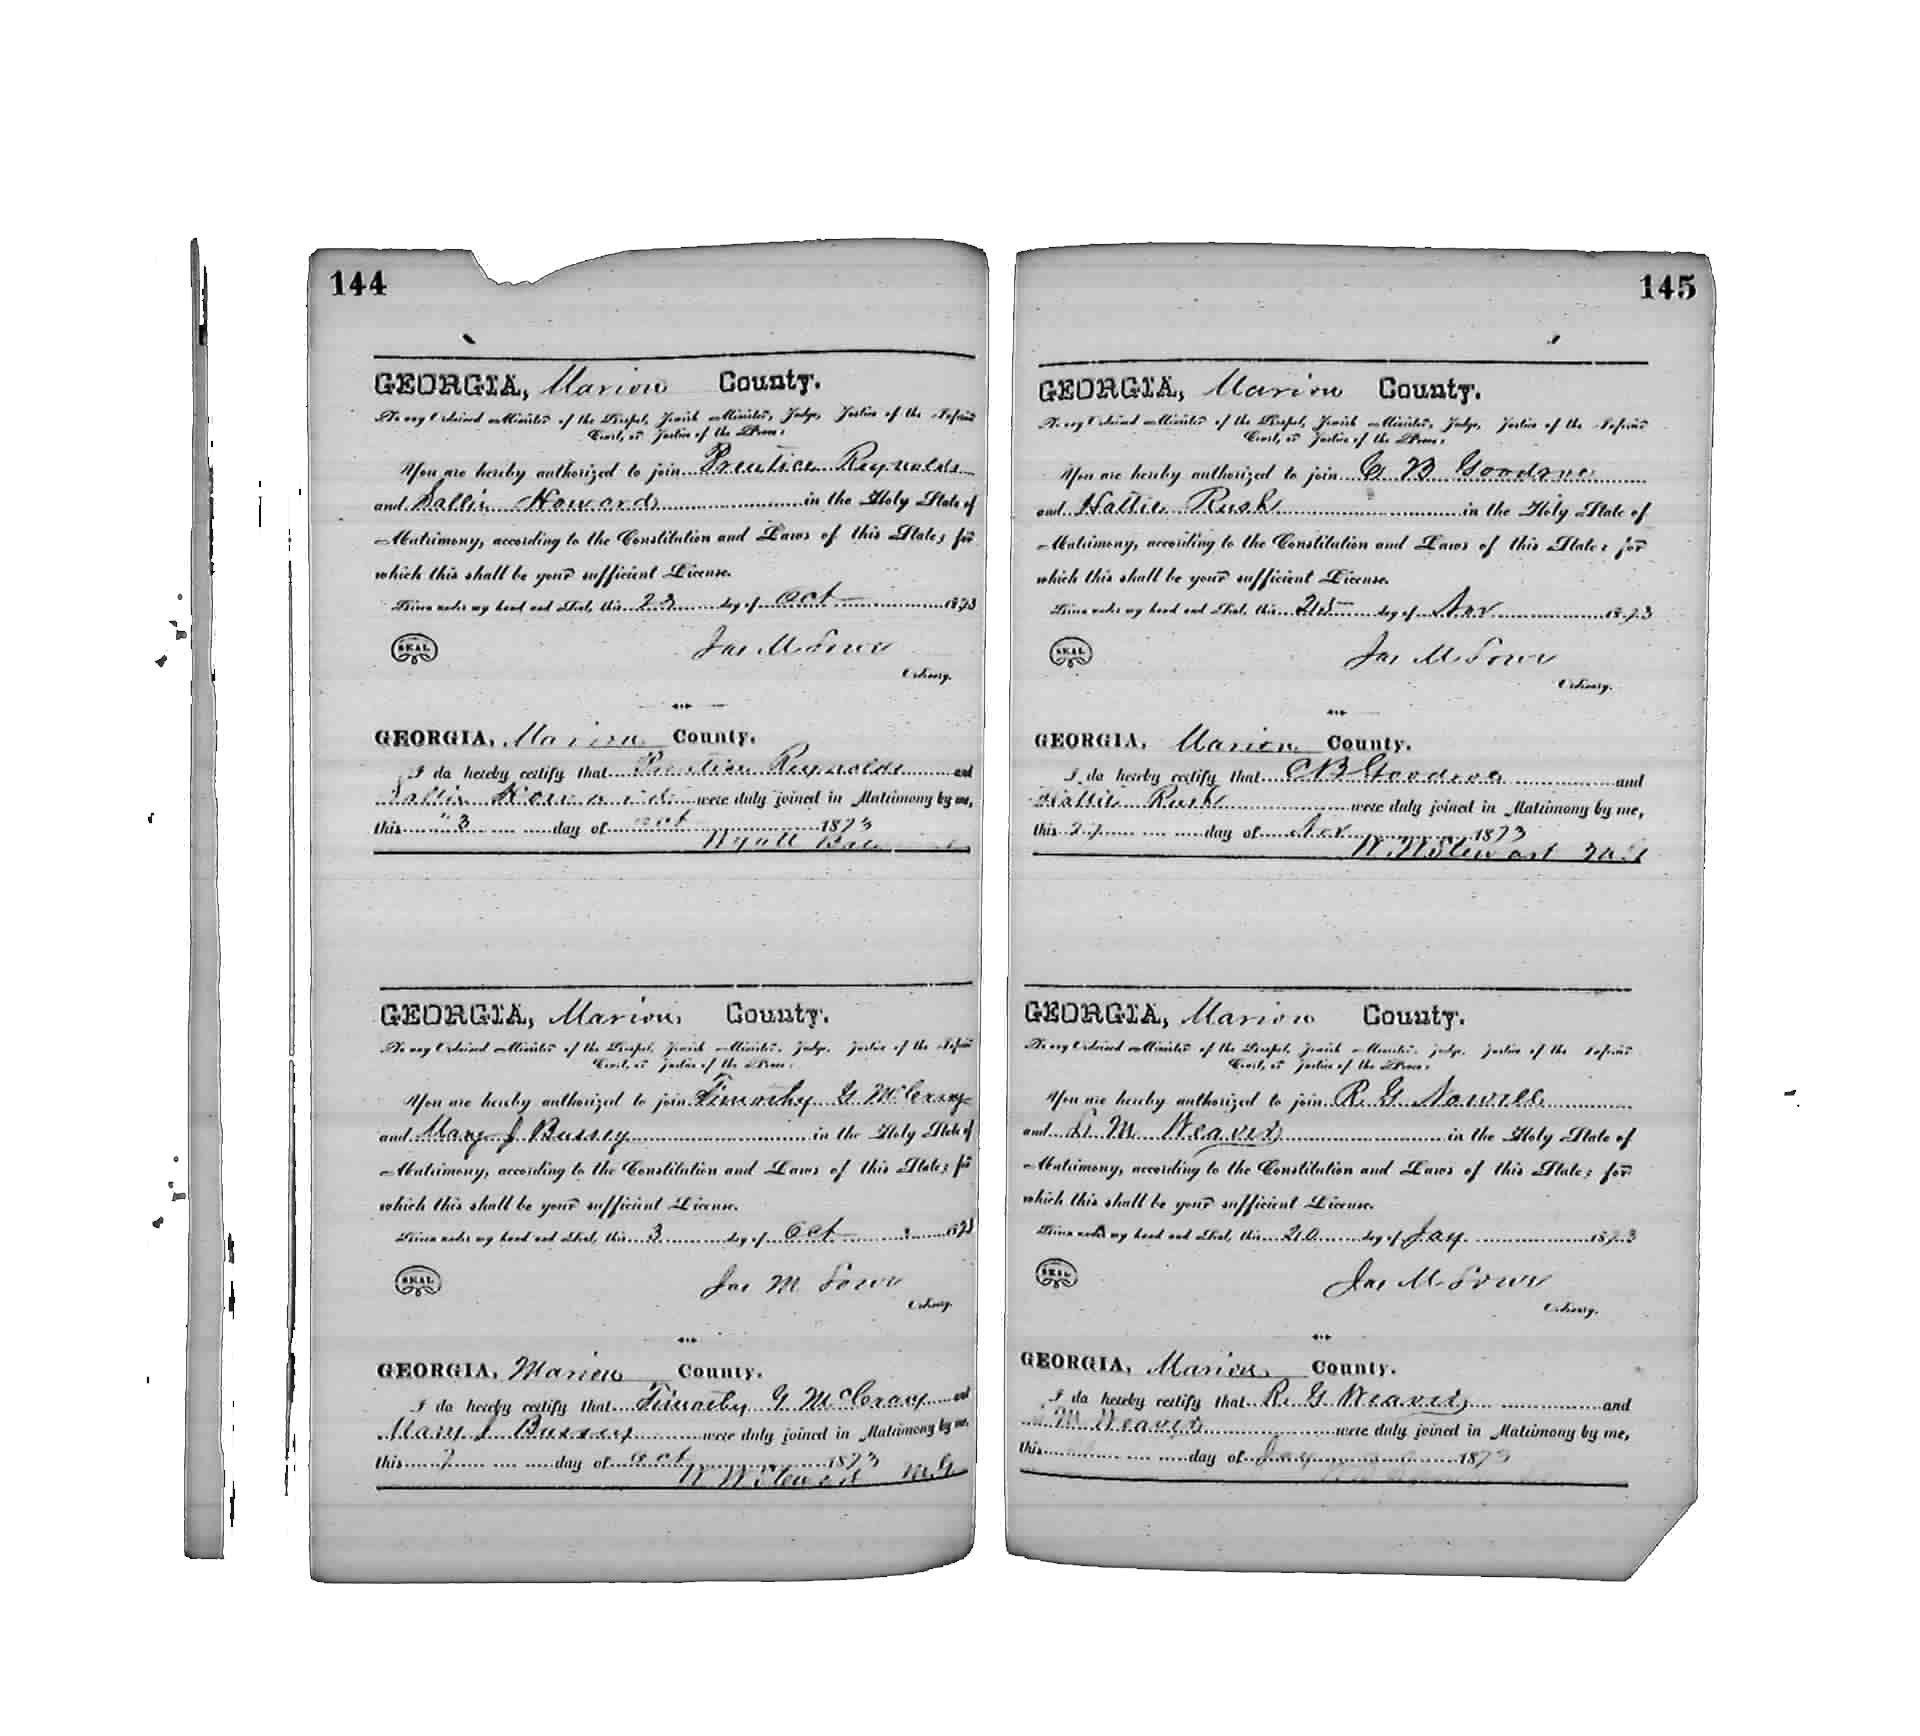 144
GEORGIA, Marion County.
To any Ordained Minister of the Gospel, Jewish Minister, Judge, Justice of the Inferior
Court, or Justice of the Peace:
You are hereby authorized to join Prentice Reynolds
and Sallie Howard in the Holy State of
Matrimony, according to the Constitution and Laws of this State; for
which this shall be your sufficient License.
Given under my hand and Seal, this 23 day of Oct 1873
SEAL
Jas M Lowe
Ordinary.
GEORGIA, Marion County.
I do hereby certify that Prentice Reynolds and
Sallie Howard were duly joined in Matrimony by me,
this 3 day of Oct 1873
Wyatt
GEORGIA, Marion County.
To any Ordained Minister of the Gospel, Jewish Minister, Judge, Justice of the Inferior
Court, or Justice of the Peace:
You are hereby authorized to join Timothy G McCrary
and Mary J Bussey in the Holy State of
Matrimony, according to the Constitution and Laws of this State; for
which this shall be your sufficient License.
Given under my hand and Seal, this 3 day of Oct 1873
SEAL
Jas M Lowe
Ordinary.
GEORGIA, Marion County.
I do hereby certify that Timothy G McCrary and
Mary J Bussey were duly joined in Matrimony by me,
this 7 day of Oct 1873
W W Stewart M.G
145
GEORGIA, Marion County.
To any Ordained Minister of the Gospel, Jewish Minister, Judge, Justice of the Inferior
Court, or Justice of the Peace:
You are hereby authorized to join C B Goodroe
and Hattie Rush in the Holy State of
Matrimony, according to the Constitution and Laws of this State; for
which this shall be your sufficient License.
Given under my hand and Seal, this 25 day of Nov 1873
SEAL
Jas M Lowe
Ordinary.
GEORGIA, Marion County.
I do hereby certify that C B Goodroe and
Hattie Rush were duly joined in Matrimony by me,
this 27 day of Nov 1873
W. W Stewart M.G
GEORGIA, Marion County.
To any Ordained Minister of the Gospel, Jewish Minister, Judge, Justice of the Inferior
Court, or Justice of the Peace:
You are hereby authorized to join R. G Nowell
and L M Weaver in the Holy State of
Matrimony, according to the Constitution and Laws of this State; for
which this shall be your sufficient License.
Given under my hand and Seal, this 20 day of Jay 1873
SEAL
Jas M Lowe
Ordinary.
GEORGIA, Marion County.
I do hereby certify that R. G Weaver and
M Weaver were duly joined in Matrimony by me,
this day of Jay 1873